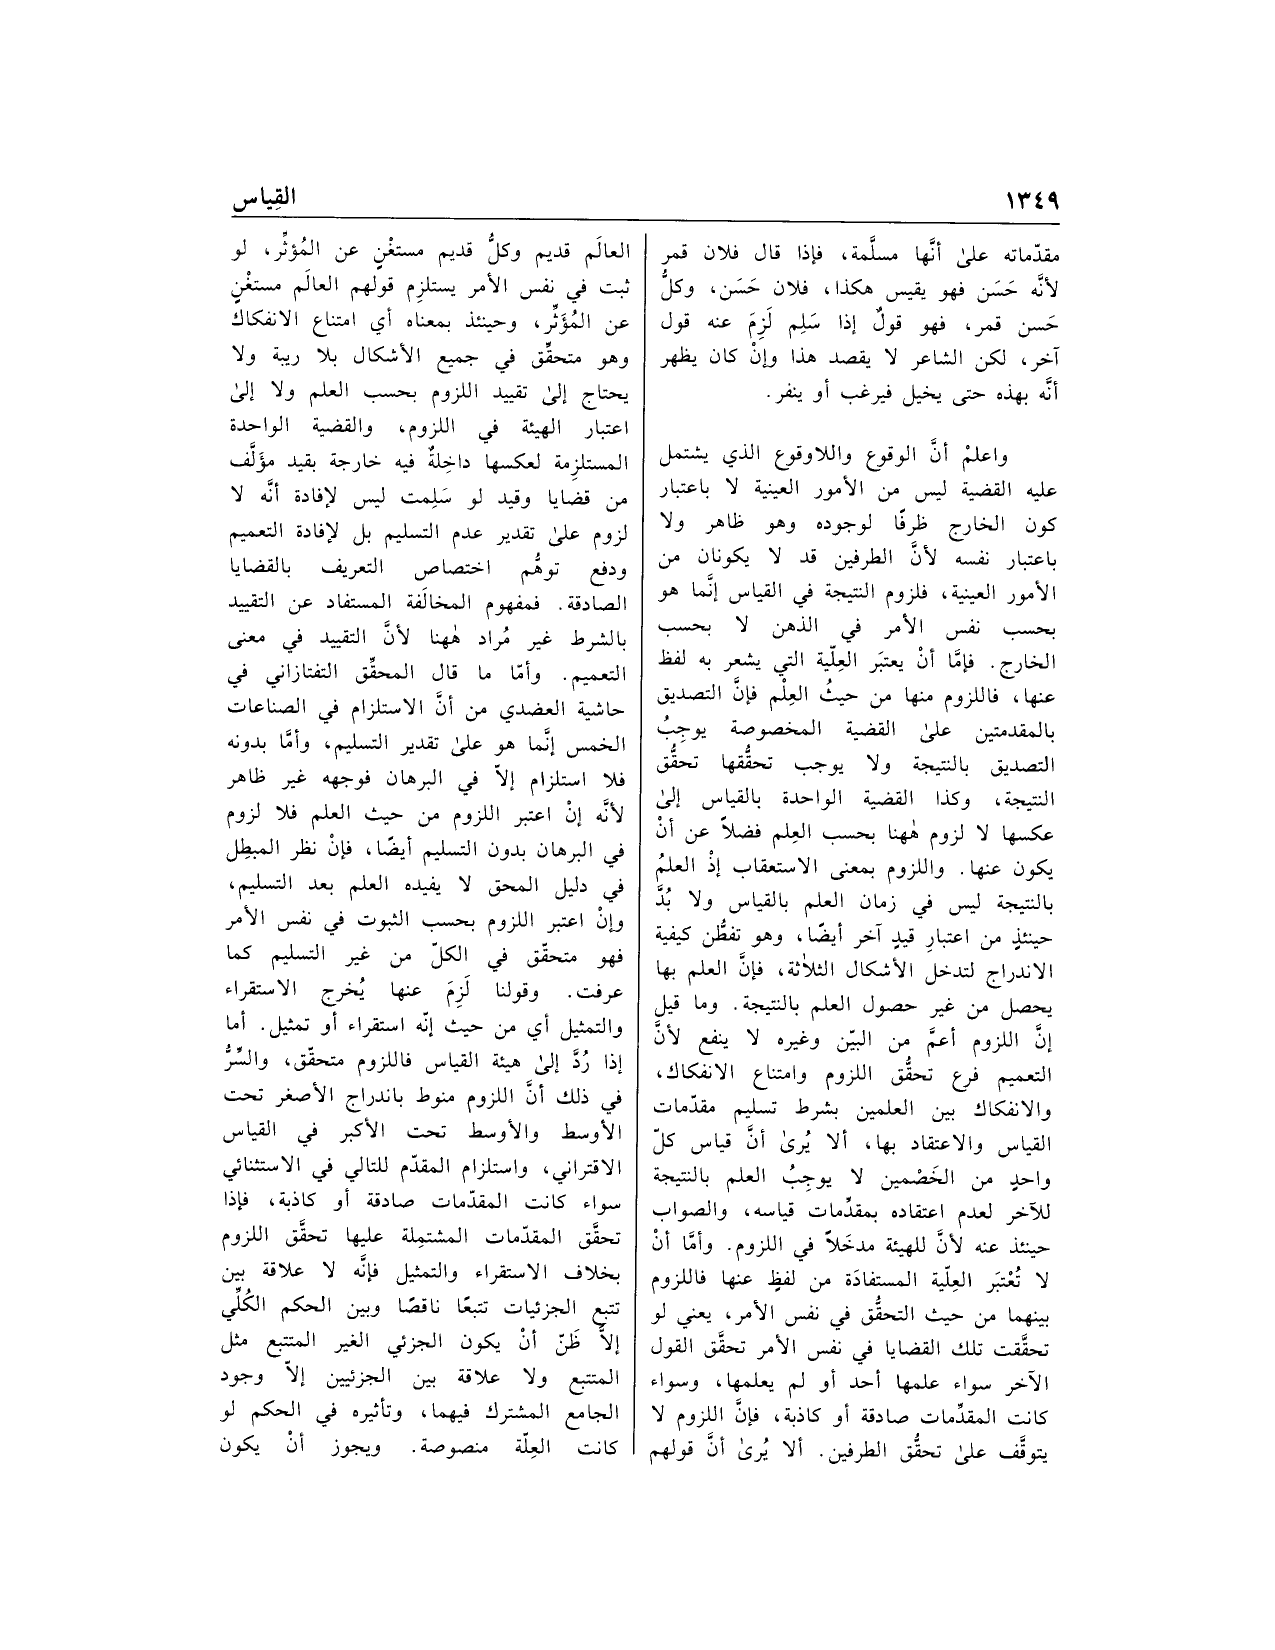 ١٣٤٩
القِياس
مقدّماته علىٰ أنَّها مسلَّمة، فإذا قال فلان قمر
لأنَّه حَسَن فهو يقيس هكذا، فلان حَسَن، وكلُّ
حَسن قمر، فهو قولٌ إذا سَلِم لَزِمَ عنه قول
آخر، لكن الشاعر لا يقصد هذا وإنْ كان يظهر
أنَّه بهذه حتى يخيل فيرغب أو ينفر.
واعلمْ أنَّ الوقوع واللاوقوع الذي يشتمل
عليه القضية ليس من الأمور العينية لا باعتبار
كون الخارج ظرفًا لوجوده وهو ظاهر ولا
باعتبار نفسه لأنَّ الطرفين قد لا يكونان من
الأمور العينية، فلزوم النتيجة في القياس إنَّما هو
بحسب نفس الأمر في الذهن لا بحسب
الخارج. فإمَّا أنْ يعتبَر العِلّية التي يشعر به لفظ
عنها، فاللزوم منها من حيثُ العِلْم فإنَّ التصديق
بالمقدمتين علىٰ القضية المخصوصة يوجِبُ
التصديق بالنتيجة ولا يوجب تحقُّقها تحقُّق
النتيجة، وكذا القضية الواحدة بالقياس إلىٰ
عكسها لا لزوم هٰهنا بحسب العِلم فضلاً عن أنْ
يكون عنها. واللزوم بمعنى الاستعقاب إذْ العلمُ
بالنتيجة ليس في زمان العلم بالقياس ولا بُدَّ
حينئذٍ من اعتبارِ قيدٍ آخر أيضًا، وهو تفطُّن كيفية
الاندراج لتدخل الأشكال الثلاثة، فإنَّ العلم بها
يحصل من غير حصول العلم بالنتيجة. وما قيل
إنَّ اللزوم أعمَّ من البيّن وغيره لا ينفع لأنَّ
التعميم فرع تحقُّق اللزوم وامتناع الانفكاك،
والانفكاك بين العلمين بشرط تسليم مقدّمات
القياس والاعتقاد بها، ألا يُرىٰ أنَّ قياس كلّ
واحدٍ من الخَصْمين لا يوجِبُ العلم بالنتيجة
للآخر لعدم اعتقاده بمقدِّمات قياسه، والصواب
حينئذ عنه لأنَّ للهيئة مدخَلاً في اللزوم. وأمَّا أنْ
لا تُعْتبَر العِلّية المستفادَة من لفظِ عنها فاللزوم
بينهما من حيث التحقُّق في نفس الأمر، يعني لو
تحقَّقت تلك القضايا في نفس الأمر تحقَّق القول
الآخر سواء علمها أحد أو لم يعلمها، وسواء
كانت المقدِّمات صادقة أو كاذبة، فإنَّ اللزوم لا
يتوقَّف علىٰ تحقُّق الطرفين. ألا يُرىٰ أنَّ قولهم
العالَم قديم وكلُّ قديم مستغْنٍ عن المُؤثِّر، لو
ثبت في نفس الأمر يستلزِم قولهم العالَم مستغْنٍ
عن المُؤَثِّر، وحينئذ بمعناه أي امتناع الانفكاك
وهو متحقِّق في جميع الأشكال بلا ريبة ولا
يحتاج إلىٰ تقييد اللزوم بحسب العلم ولا إلىٰ
اعتبار الهيئة في اللزوم، والقضية الواحدة
المستلزِمة لعكسها داخِلةٌ فيه خارجة بقيد مؤلَّف
من قضايا وقيد لو سَلِمت ليس لإفادة أنَّه لا
لزوم علىٰ تقدير عدم التسليم بل لإفادة التعميم
ودفع توهُّم اختصاص التعريف بالقضايا
الصادقة. فمفهوم المخالَفة المستفاد عن التقييد
بالشرط غير مُراد هٰهنا لأنَّ التقييد في معنى
التعميم. وأمّا ما قال المحقِّق التفتازاني في
حاشية العضدي من أنَّ الاستلزام في الصناعات
الخمس إنَّما هو علىٰ تقدير التسليم، وأمَّا بدونه
فلا استلزام إلاّ في البرهان فوجهه غير ظاهر
لأنَّه إنْ اعتبر اللزوم من حيث العلم فلا لزوم
في البرهان بدون التسليم أيضًا، فإنْ نظر المبطِل
في دليل المحق لا يفيده العلم بعد التسليم،
وإنْ اعتبر اللزوم بحسب الثبوت في نفس الأمر
فهو متحقّق في الكلّ من غير التسليم كما
عرفت. وقولنا لَزِمَ عنها يُخرج الاستقراء
والتمثيل أي من حيث إنّه استقراء أو تمثيل. أما
إذا رُدَّ إلىٰ هيئة القياس فاللزوم متحقّق، والسِّرُّ
في ذلك أنَّ اللزوم منوط باندراج الأصغر تحت
الأوسط والأوسط تحت الأكبر في القياس
الاقتراني، واستلزام المقدّم للتالي في الاستثنائي
سواء كانت المقدّمات صادقة أو كاذبة، فإذا
تحقَّق المقدّمات المشتمِلة عليها تحقَّق اللزوم
بخلاف الاستقراء والتمثيل فإنَّه لا علاقة بين
تتبع الجزئيات تتبعًا ناقصًا وبين الحكم الكُلِّي
إلاَّ ظَنّ أنْ يكون الجزئي الغير المتتبع مثل
المتتبع ولا علاقة بين الجزئيين إلاّ وجود
الجامع المشترك فيهما، وتأثيره في الحكم لو
كانت العِلّة منصوصة. ويجوز أنْ يكون